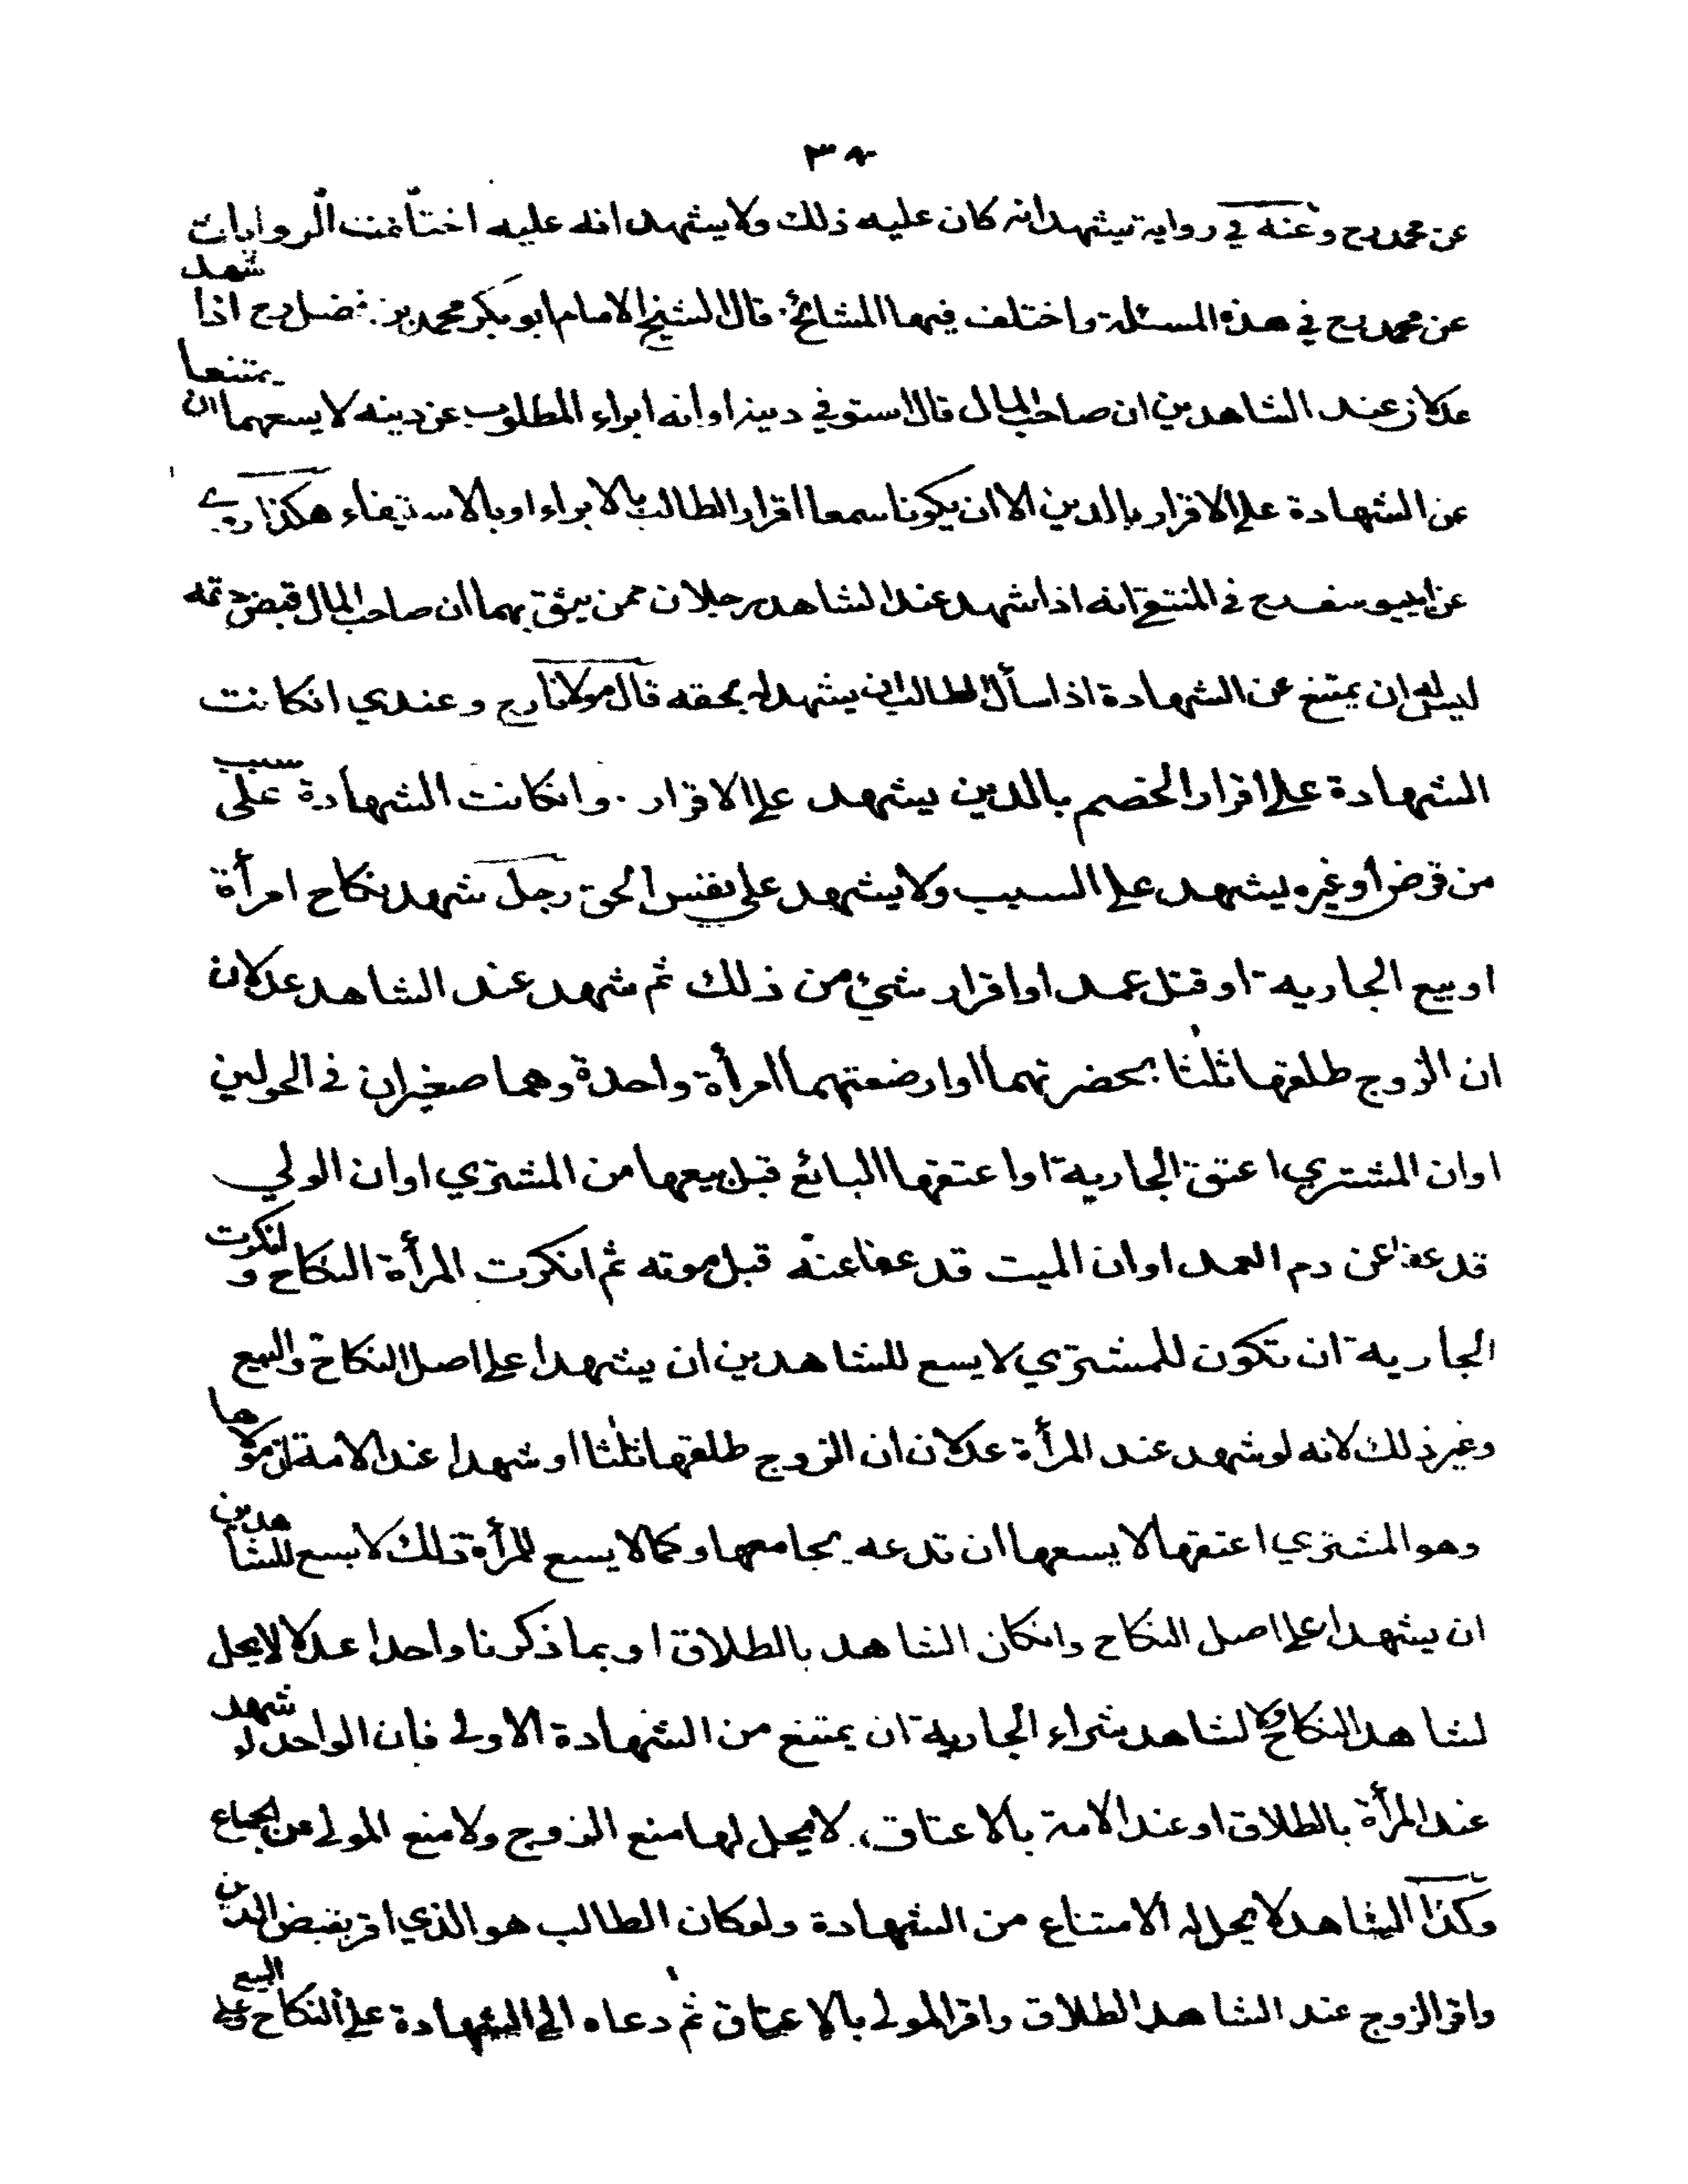 ٣٤
عن محمد رح وعنه في رواية يشهد انه كان عليه ذلك ولا يشهد انه عليه اختلفت الروايات
عن محمد رح في هذه المسئلة واختلف فيها المشائخ قال الشيخ الامام ابو بكر محمد بن فضل رح اذا شهد
عدلان عند الشاهدين ان صاحب المال قال استوفي دينه او انه ابراء المطلوب عن دينه لا يسعهما ان يمتنعا
عن الشهادة على الاقرار بالدين الا ان يكونا سمعا اقرار الطالب بالابراء او بالاستيفاء هكذا
عن ابي يوسف رح في المنتقى انه اذا شهد عند الشاهد رجلان ممن يثق بهما ان صاحب المال قبض حقه
ليس له ان يمتنع عن الشهادة اذا سأل الطالب ان يشهد له بحقه قال مولانا رح وعندي انكانت
الشهادة على اقرار الخصم بالدين يشهد على الاقرار وانكانت الشهادة على سبب
من قرض او غيره يشهد على السبب ولا يشهد على نفس الحق رجل شهد نكاح امرأة
او بيع الجارية او قتل عمد او اقرار شئ من ذلك ثم شهد عند الشاهد عدلان
ان الزوج طلقها ثلثا بحضرتهما او ارضعتهما امرأة واحدة وهما صغيران في الحولين
او ان المشتري اعتق الجارية او اعتقها البائع قبل بيعها من المشتري او ان الولي
قد عفا عن دم العمد او ان الميت قد عفا عنه قبل موته ثم انكرت المرأة النكاح و انكرت
الجارية ان تكون للمشتري لا يسع للشاهدين ان يشهدا على اصل النكاح والبيع
وغير ذلك لانه لو شهد عند المرأة عدلان ان الزوج طلقها ثلثا او شهدا عند الامة ان مولاها
وهو المشتري اعتقها لا يسعها ان تدعه يجامعها وكما لا يسع للمرأة ذلك لا يسع للشاهدين
ان يشهدا على اصل النكاح وانكان الشاهد بالطلاق او بما ذكرنا واحدا عدلا لا يحل
لشاهد النكاح ولا لشاهد شراء الجارية ان يمتنع من الشهادة الاولى فان الواحد لو شهد
عند المرأة بالطلاق او عند الامة بالاعتاق لا يحل لها منع الزوج ولا منع المولى عن الجماع
وكذا الشاهد لا يحل له الامتناع من الشهادة ولو كان الطالب هو الذي اقر بقبض الدين
واقر الزوج عند الشاهد الطلاق واقر المولى بالاعتاق ثم دعاه الى الشهادة على النكاح وعلى البيع